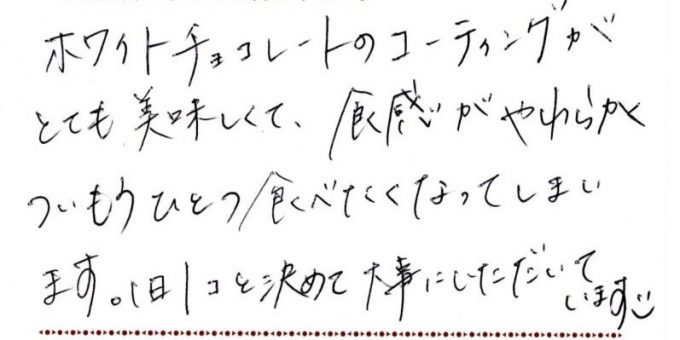 ホワイトチョコレートのコーティングが
とても美味しくて、食感がやわらかく
ついもうひとつ食べたくなってしまい
ます。1日1コと決めて大事にいただいて
います